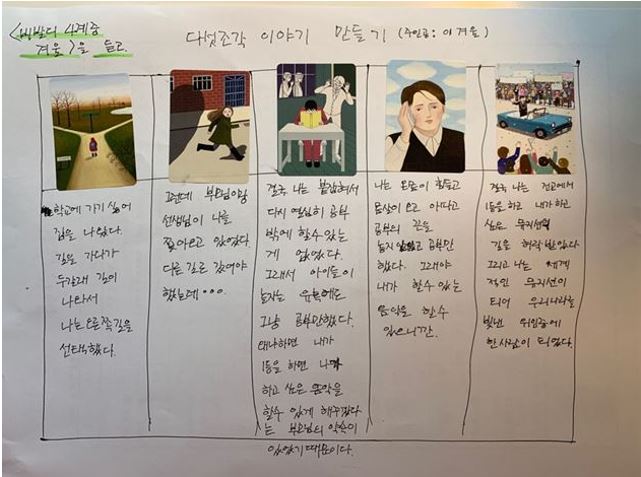 <비발디 사계중
겨울>을 듣고.
다섯조각 이야기 만들기 (주인공: 이겨울)
학교에 가기 싫어
집을 나왔다.
길을 가다가
두갈래 길이
나타서
나는 오른쪽길을
선택했다.
그런데 부모님이랑
선생님이 나를
쫓아오고 있었다.
다른 길로 갔어야
했는데...
결국 나는 붙잡혀서
다시 열심히 공부
밖에 할수 있는
게 없었다.
그래서 아이들이
놀자는 유혹에도
그냥 공부만했다.
왜냐하면 내가
1등을 하면 나가
하고 싶은 음악을
할수 있게 해주겠다
는 부모님의 약속이
있었기 때문이다.
나는 온몸이 힘들고
몸살이 오고 아파고
공부의 끈을
놓지 않았고 공부만
했다. 그래야
내가 할수 있는
음악을 할 수
있으니깐.
결국 나는 전교에서
1등을 하고 내가 하고
싶은 뮤지션의
길을 허락 받았다.
그리고 나는 세계
적인 뮤지션이
되어 우리나라를
빛낸 위인중에
한사람이 되었다.